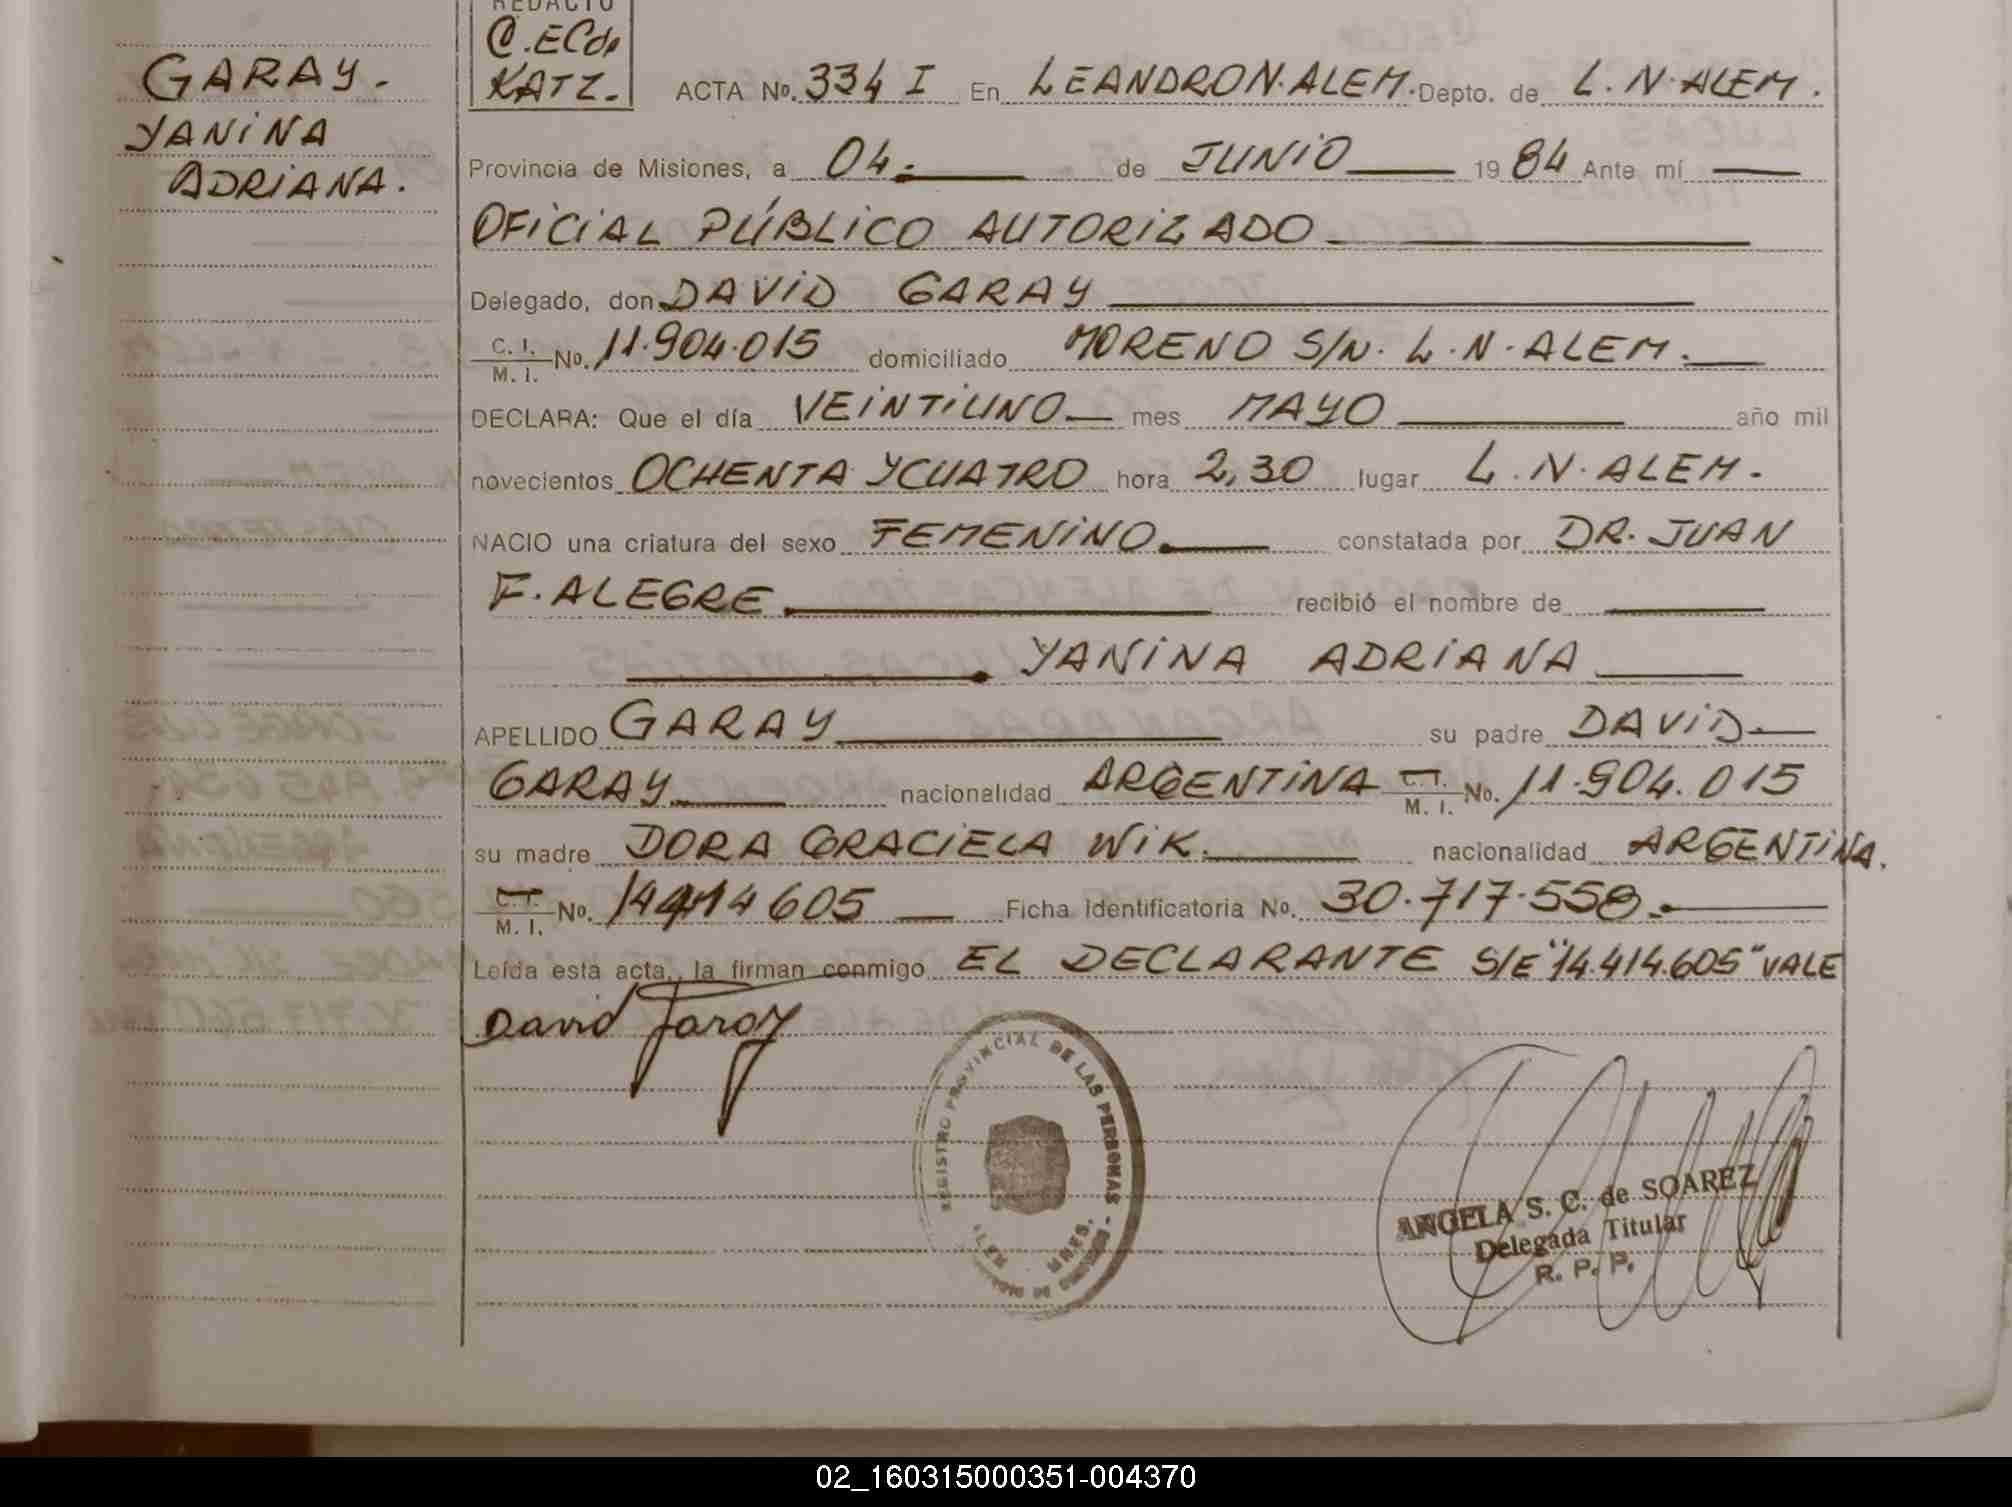 REDACTO
C. ECor
KATZ.
GARAY.
YANINA
ADRIANA.
ACTA No. 334 I En LEANDRO N. ALEM. Depto. de L. N. ALEM.
Provincia de Misiones, a 04. de JUNIO 1984 Ante mí
OFICIAL PÚBLICO AUTORIZADO
Delegado, don DAVID GARAY
C. I. / M. I. No. 11.904.015 domiciliado MORENO S/N. L. N. ALEM.
DECLARA: Que el día VEINTIUNO mes MAYO año mil
novecientos OCHENTA Y CUATRO hora 2,30 lugar L. N. ALEM.
NACIO una criatura del sexo FEMENINO. constatada por DR. JUAN
F. ALEGRE recibió el nombre de
YANINA ADRIANA
APELLIDO GARAY su padre DAVID
GARAY nacionalidad ARGENTINA C. I. / M. I. No. 11.904.015
su madre DORA GRACIELA WIK. nacionalidad ARGENTINA.
C. I. / M. I. No. 14414605 Ficha identificatoria No. 30.717.558.
Leída esta acta, la firman conmigo EL DECLARANTE S/E "14.414.605" VALE
David Garay
REGISTRO PROVINCIAL DE LAS PERSONAS -
ALEM MNES.
ANGELA S. C. de SOAREZ
Delegada Titular
R. P. P.
02_160315000351-004370